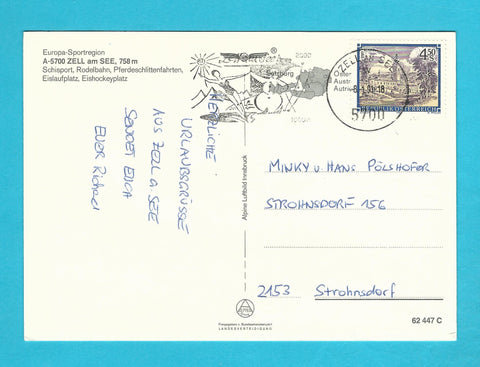 Europa-Sportregion
A-5700 ZELL am SEE, 758 m
Schisport, Rodelbahn, Pferdeschlittenfahrten,
Eislaufplatz, Eishockeyplatz
HERZLICHE
URLAUBSGRÜSSE
AUS ZELL a. SEE
SENDET EUCH
EUER Richard
Alpine Luftbild Innsbruck
ALPINE
Freigegeben v. Bundesministerium f.
LANDESVERTEIDIGUNG
®
2000
Salzburg
1000m
ZELL
SEE
5700
4.50
REPUBLIK ÖSTERREICH
MINKY u. HANS PÖLSHOFER
STROHNSDORF 156
2153 Strohnsdorf
62 447 C